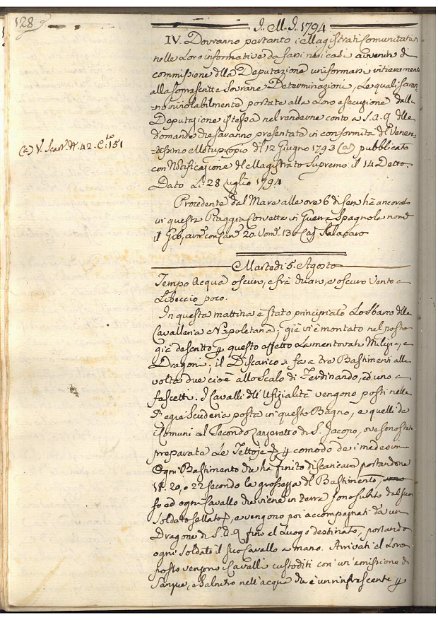 128
J. M. J. 1794
IV. Dovranno pertanto i Magistrati Comunitativi
nelle Loro informative da farsi nei casi avvenire di
commissione della Deputazione uniformarsi intieramente
alla Sovrascritte Sovrane Determinazioni, le quali saranno
inviolabilmente portate alla Loro esecuzione dalla
Deputazione istessa nel rendere conto a S. A. R. delle
domande che saranno presentate in conformità del Veneratissimo
motuproprio di 12 Giugno 1793 (a) pubblicato
con Notificazione del Magistrato Supremo il 14 Detto
Dato li 28 Luglio 1794
(a) V. 42 C. 181
Procidente dal Mare alle ore 6 di sera hà ancorato
in questa Piaggia Corvetta di Guerra Spagnola
20. 136 Cap.
Martedi 5. Agosto
Tempo Acqua oscuro, e frà chiaro, e oscuro Vento a
Libeccio poco.
In questa mattina è stato principiato Lo sbarco della
Cavalleria Napoletana; già vi è montato nel posto
già descritto p questo effetto La mentovata Milizia, e
Dragoni; il Discarico si fa a tre Bastimenti alla
volta due cioè allo Scalo di Ferdinando, ed uno a
fascetti. I Cavalli dell' Ufizialità vengono posti nella
Regia Scuderia posta in questo Bagno, e quelli de
Comuni al Secondo Lazzaretto di S. Jacopo, ove sono state
preparate Le Tettoje p comodo dei medesimi
Ogni Bastimento che ha finito di scaricare portandone
20, o 22 secondo la grossezza del Bastimento,
ed ogni Cavallo che viene in terra sono subito dal suo
Soldato sellato, e vengono poi accompagnati da un
Dragone di S. A. R. fino al Luogo destinato, portando
ogni Soldato il suo Cavallo a mano. Arrivati al Loro
posto vengono i Cavalli custoditi con un' emissione di
Sangue, e Salnitro nell' acqua che è un rinfrescante p